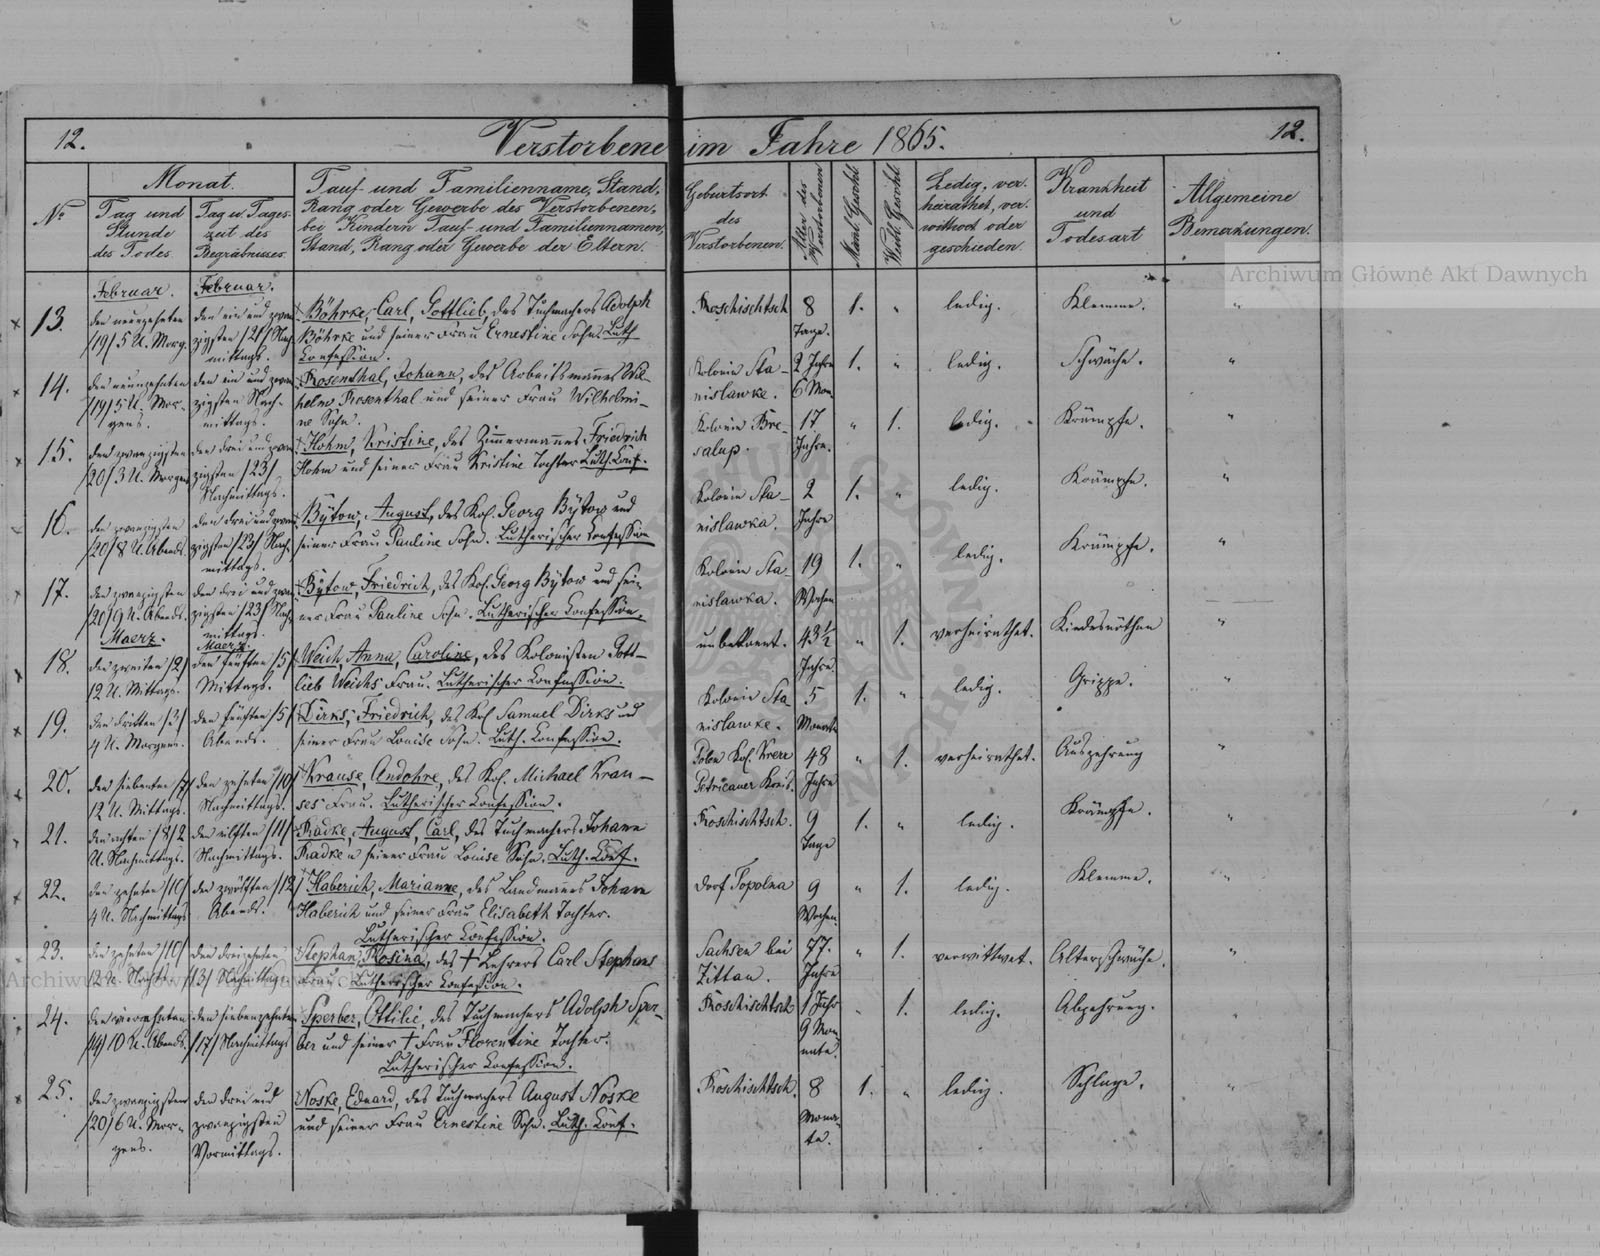 12.
Verstorbene im Jahre 1865.
12.
No
Monat.
Tag und Stunde des Todes.
Tag u. Tages-zeit des Begräbnisses.
Tauf- und Familienname, Stand,
Rang oder Gewerbe des Verstorbenen,
bei Kindern Tauf- und Familiennamen,
Stand, Rang oder Gewerbe der Eltern.
Geburtsort
des
Verstorbenen.
Alter des Verstorbenen
Mänl. Geschl.
Weibl. Geschl.
Ledig, ver-
heirathet, ver-
wittwet oder
geschieden.
Krankheit
und
Todesart
Allgemeine
Bemerkungen.
Archiwum Główne Akt Dawnych
Februar. Februar.
13.
den neunzehnten
/19/ 5 U. Morg.
den ein und zwan-
zigsten /21/ Nach-
mittags.
Böhrke, Carl, Gottlieb, des Tuchmachers Adolph
Böhrke und seiner Frau Ernestine Sohn. Luth.
Confession.
Roschischtsch 8 Tage. 1. " ledig. Klemme. "
14.
den neunzehnten
/19/ 5 U. Mor-
gens.
den ein und zwan-
zigsten Nach-
mittags.
Rosenthal, Johann, des Arbeitsmannes Wil-
helm Rosenthal und seiner Frau Wilhelmi-
ne Sohn.
Kolonie Sta-
nislawke.
2 Jahre
6 Mon.
1. " ledig. Schwäche. "
15.
den zwanzigsten
/20/ 3 U. Morgens
den drei und zwan-
zigsten /23/
Nachmittags.
Hohm, Kristine, des Zimmermannes Friedrich
Hohm und seiner Frau Kristine Tochter. Luth. Conf.
Kolonie Bre-
salup.
17
Jahre.
" 1. ledig. Krämpfe. "
16.
den zwanzigsten
/20/ 8 U. Abends.
den drei und zwan-
zigsten /23/ Nach-
mittags.
Bytow, August, des Kol. Georg Bytow und
seiner Frau Pauline Sohn. Lutherischer Confession
Kolonie Sta-
nislawka.
2
Jahre
1. " ledig. Krämpfe. "
17.
den zwanzigsten
/20/ 9 U. Abends.
den drei und zwan-
zigsten /23/ Nach-
mittags.
Bytow, Friedrich, des Kol. Georg Bytow und sei-
ner Frau Pauline Sohn. Lutherischer Confession.
Kolonie Sta-
nislawka.
19
Wochen
1. " ledig. Krämpfe. "
Maerz. Maerz.
18.
den zweiten /2/
12 U. Mittags.
den fünften /5/
Mittags.
Weich, Anna, Caroline, des Kolonisten Gott-
lieb Weichs Frau. Lutherischer Confession.
unbekannt.
43 1/2
Jahre.
" 1. verheirathet. Kindesnöthen "
19.
den dritten /3/
4 U. Morgens.
den fünften /5/
Abends.
Dirks, Friedrich, des Kol. Samuel Dirks und
seiner Frau Louise Sohn. Luth. Confession.
Kolonie Sta-
nislawke.
5
Monate
1. " ledig. Grippe. "
20.
den siebenten /7/
12 U. Mittags.
den zehnten /10/
Nachmittags.
Krause, des Kol. Michael Krau-
ses Frau. Lutherischer Confession.
Polen Kol.
Petricauer Kreis.
48
Jahre
" 1. verheirathet. Auszehrung "
21.
den achten /8/ 2
U. Nachmittags.
den eilften /11/
Nachmittags.
Radke, August, Carl, des Tuchmachers Johann
Radke u seiner Frau Louise Sohn. Luth. Conf.
Roschischtsch.
9
Tage
1. " ledig. Krämpfe. "
22.
den zehnten /10/
4 U. Nachmittags
den zwölften /12/
Abends.
Haberich, Marianne, des Landmanns Johann
Haberich und seiner Frau Elisabeth Tochter.
Lutherischer Confession.
Dorf Topolna
9
Wochen.
" 1. ledig. Klemme. "
23.
den zehnten /10/
12 U. Nachts.
den dreizehnten
/13/ Nachmittags
Stephan, Rosina, des † Lehrers Carl Stephans
Frau. Lutherischer Confession.
Sachsen bei
Zittau.
77.
Jahre
" 1. verwittwet. Altersschwäche. "
Archiwum
24.
den vierzehnten
/14/ 10 U. Abends.
den siebenzehnten
/17/ Nachmittags
Sperber, Ottilie, des Tuchmachers Adolph Sper-
ber und seiner † Frau Florentine Tochter.
Lutherischer Confession.
Roschischtsch
1 Jahr
9 Mo-
nate.
" 1. ledig. Abzehrung. "
25.
den zwanzigsten
/20/ 6 U. Mor-
gens.
den drei und
zwanzigsten
Vormittags.
Noske, Eduard, des Tuchmachers August Noske
und seiner Frau Ernestine Sohn. Luth. Conf.
Roschischtsch.
8
Mona-
te.
1. " ledig. Schlage. "